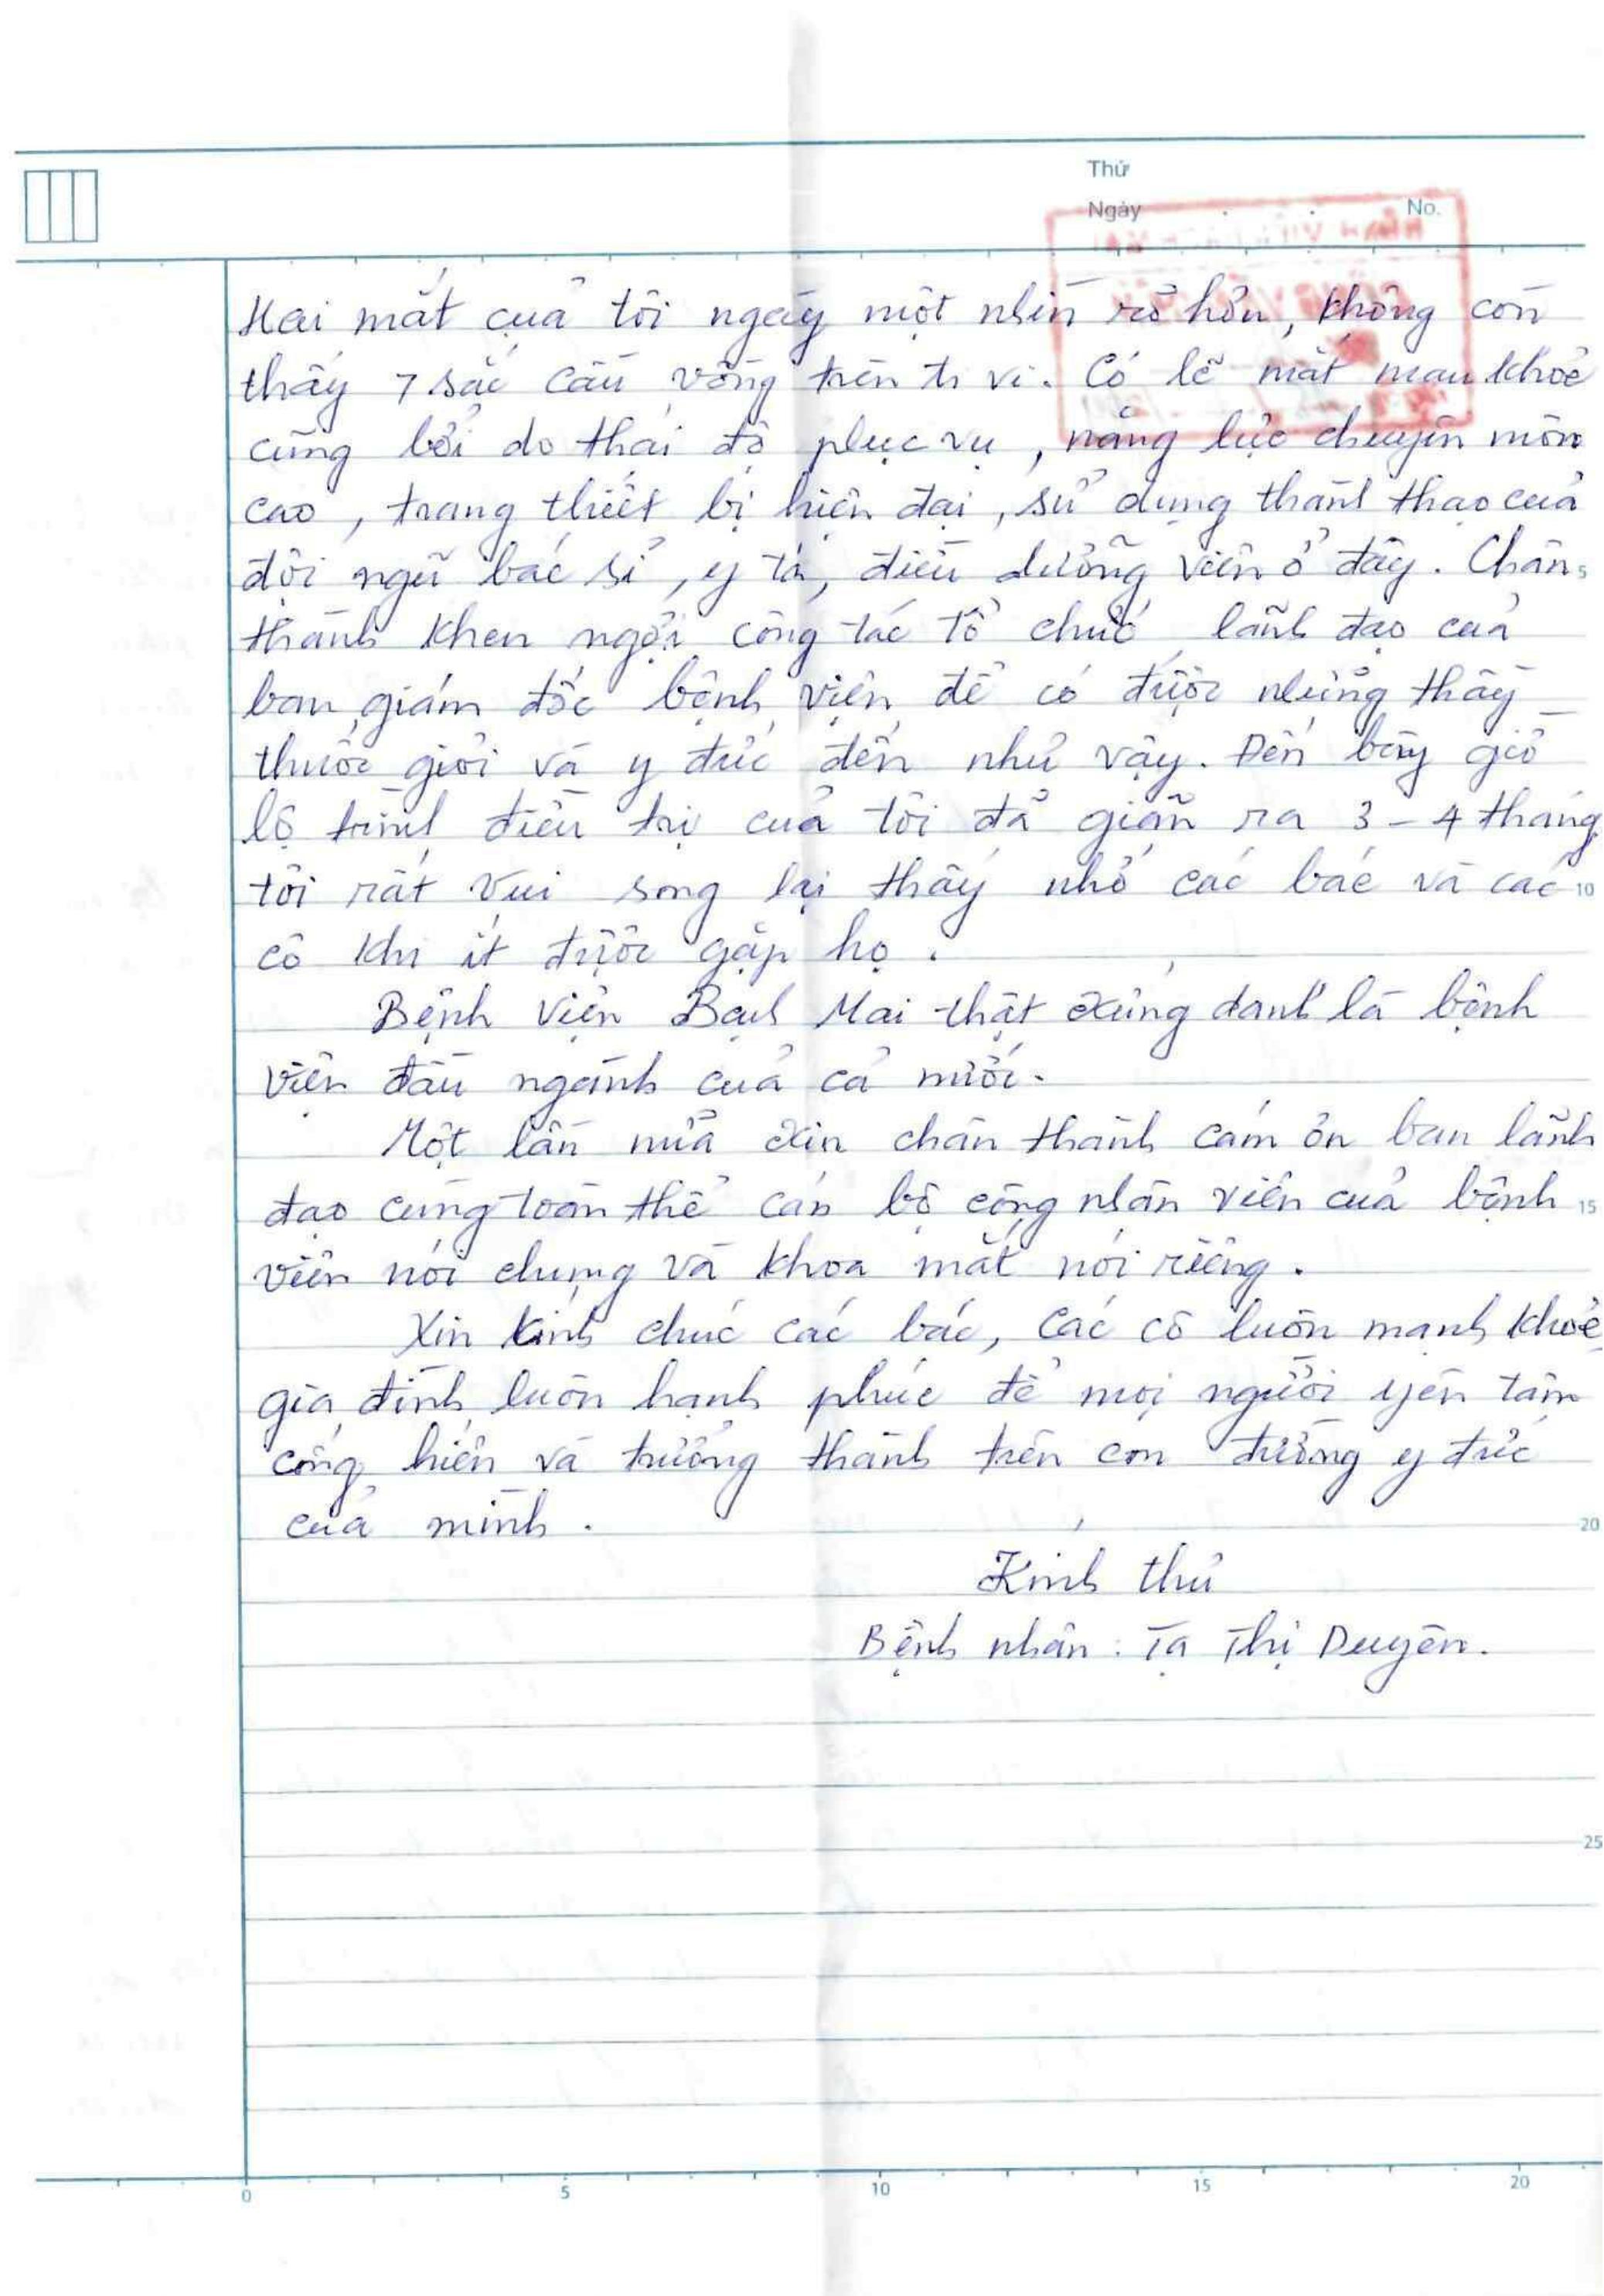 Thứ
Ngày No.
Hai mắt của tôi ngày một nhìn rõ hơn, không còn
thấy 7 sắc cầu vồng trên ti vi. Có lẽ mắt mau khoẻ
cũng bởi do thái độ phục vụ, năng lực chuyên môn
cao, trang thiết bị hiện đại, sử dụng thành thạo của
đội ngũ bác sĩ, y tá, điều dưỡng viên ở đây. Chân 5
thành khen ngợi công tác tổ chức lãnh đạo của
ban giám đốc bệnh viện để có được những thầy
thuốc giỏi và y đức đến như vậy. Đến bây giờ
lộ trình điều trị của tôi đã giãn ra 3 - 4 tháng
tôi rất vui song lại thấy nhớ các bác và các 10
cô khi ít được gặp họ.
Bệnh viện Bạch Mai thật xứng danh là bệnh
viện đầu ngành của cả nước.
Một lần nữa xin chân thành cám ơn ban lãnh
đạo cùng toàn thể cán bộ công nhân viên của bệnh 15
viện nói chung và khoa mắt nói riêng.
Xin kính chúc các bác, các cô luôn mạnh khoẻ
gia đình luôn hạnh phúc để mọi người yên tâm
cống hiến và trưởng thành trên con đường y đức
của mình. 20
Kính thư
Bệnh nhân: Tạ Thị Duyên.
25
0 5 10 15 20